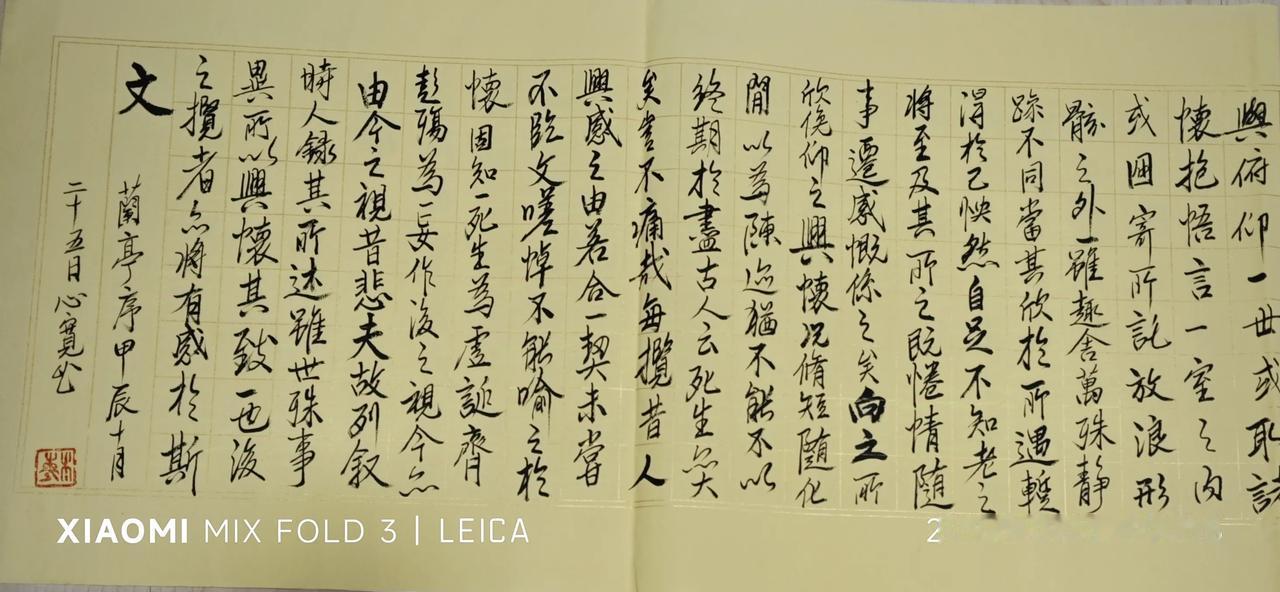 與俯仰一世或取諸
懷抱悟言一室之內
或因寄所託放浪形
骸之外雖趣舍萬殊靜
躁不同當其欣於所遇暫
得於己怏然自足不知老之
將至及其所之既惓情隨
事遷感慨係之矣向之所
欣俛仰之興懷況脩短隨化
閒以為陳迹猶不能不以
終期於盡古人云死生亦大
矣豈不痛哉每攬昔人
興感之由若合一契未嘗
不臨文嗟悼不能喻之於
懷固知一死生為虛誕齊
彭殤為妄作後之視今亦
由今之視昔悲夫故列叙
時人録其所述雖世殊事
異所以興懷其致一也後
之攬者亦將有感於斯
文
蘭亭序甲辰十月
二十五日心寬書
XIAOMI MIX FOLD 3 | LEICA